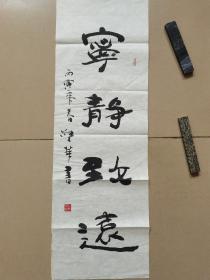 寧靜致遠
丙寅年春月
華書